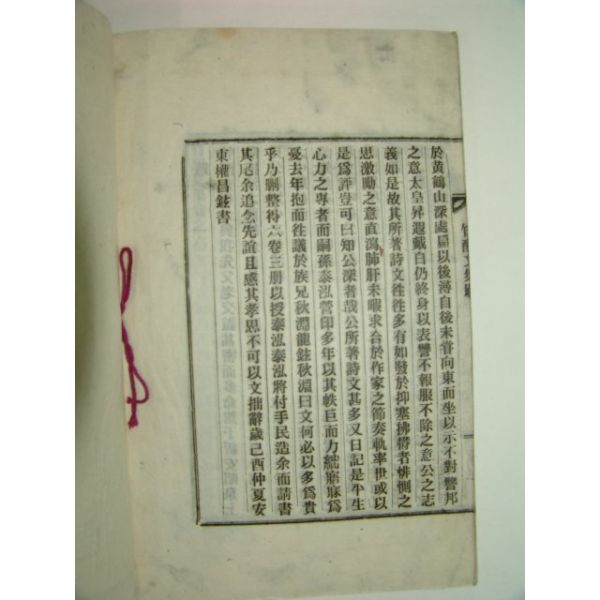 於黃鶴山深處扁以後薄自後未甞向東而坐以示不對讐邦
之意太皇昇遐戴白仍終身以表讐不報服不除之意公之志
義如是故其所著詩文徃徃多有如發於抑塞拂欝者悱惻之
思激勵之意直瀉肺肝未暇求合於作家之節奏軌率世或以
是爲評豈可曰知公深者哉公所著詩文甚多又日記是平生
心力之專者而嗣孫泰泓營印多年以其帙巨而力絀寤寐爲
憂去年抱而徃議於族兄秋淵龍鉉秋淵曰文何必以多爲貴
乎乃刪整得六卷三册以授泰泓泰泓將付手民造余而請書
其尾余追念先誼且感其孝思不可以文拙辭歲己酉仲夏安
東權昌鉉書
文集